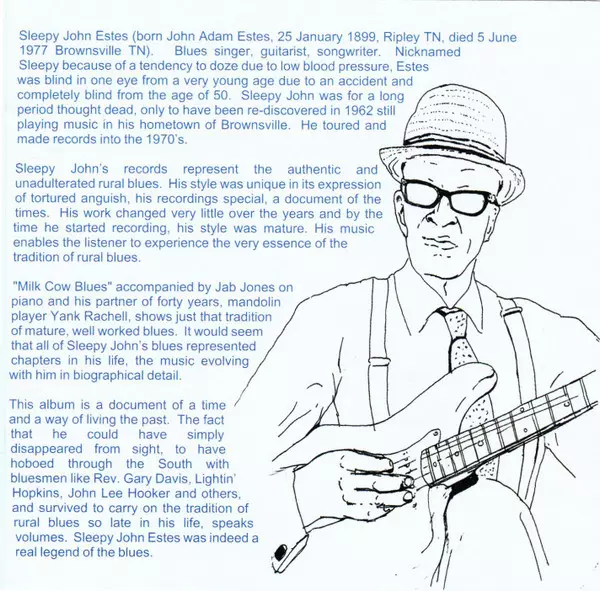 Sleepy John Estes (born John Adam Estes, 25 January 1899, Ripley TN, died 5 June
1977 Brownsville TN). Blues singer, guitarist, songwriter. Nicknamed
Sleepy because of a tendency to doze due to low blood pressure, Estes
was blind in one eye from a very young age due to an accident and
completely blind from the age of 50. Sleepy John was for a long
period thought dead, only to have been re-discovered in 1962 still
playing music in his hometown of Brownsville. He toured and
made records into the 1970's.
Sleepy John's records represent the authentic and
unadulterated rural blues. His style was unique in its expression
of tortured anguish, his recordings special, a document of the
times. His work changed very little over the years and by the
time he started recording, his style was mature. His music
enables the listener to experience the very essence of the
tradition of rural blues.
"Milk Cow Blues" accompanied by Jab Jones on
piano and his partner of forty years, mandolin
player Yank Rachell, shows just that tradition
of mature, well worked blues. It would seem
that all of Sleepy John's blues represented
chapters in his life, the music evolving
with him in biographical detail.
This album is a document of a time
and a way of living the past. The fact
that he could have simply
disappeared from sight, to have
hoboed through the South with
bluesmen like Rev. Gary Davis, Lightin'
Hopkins, John Lee Hooker and others,
and survived to carry on the tradition of
rural blues so late in his life, speaks
volumes. Sleepy John Estes was indeed a
real legend of the blues.